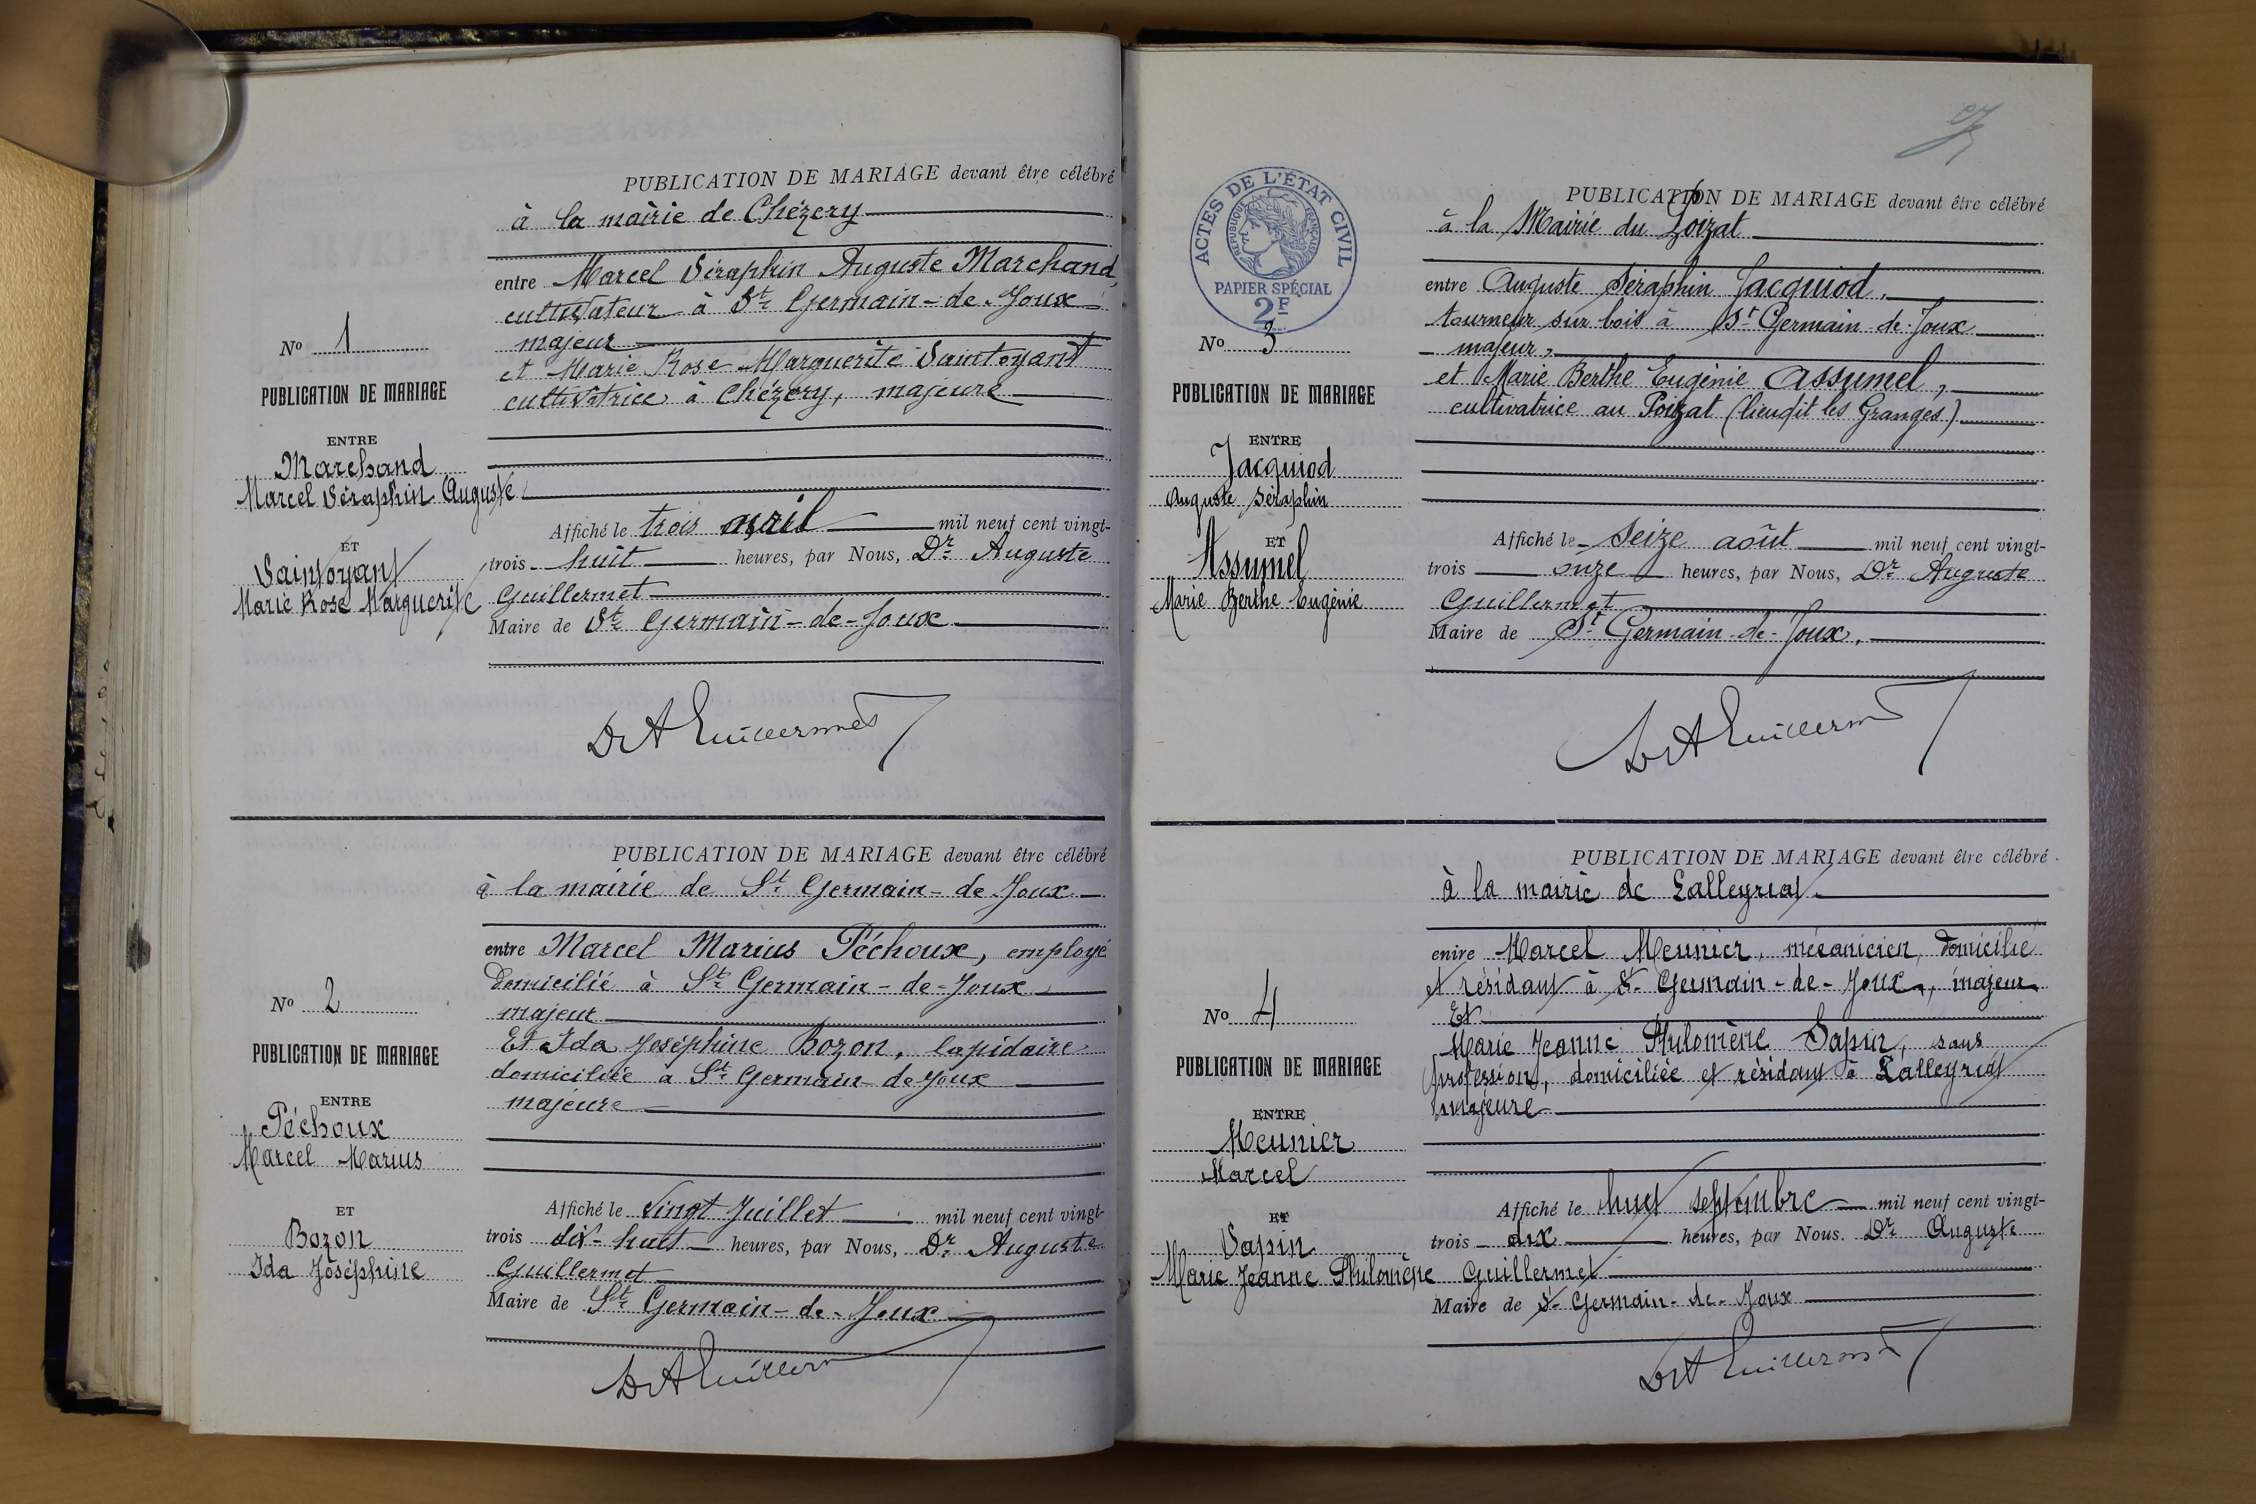 PUBLICATION DE MARIAGE devant être célébré
à la mairie de Chézery
entre Marcel Séraphin Auguste Marchand,
cultivateur à St Germain-de-Joux
majeur
et Marie Rose Marguerite Saintoyant
cultivatrice à Chézery, majeure
No 1
PUBLICATION DE MARIAGE
ENTRE
Marchand
Marcel Séraphin Auguste
ET
Saintoyant
Marie Rose Marguerite
Affiché le trois avril mil neuf cent vingt-
trois huit heures, par Nous, Dr Auguste
Guillermet
Maire de St Germain-de-Joux
Dr A Guillermet
PUBLICATION DE MARIAGE devant être célébré
à la mairie de St Germain-de-Joux
entre Marcel Marius Péchoux, employé
domicilié à St Germain-de-Joux
majeur
Et Ida Joséphine Bozon, lapidaire
domiciliée à St Germain-de Joux
majeure
No 2
PUBLICATION DE MARIAGE
ENTRE
Péchoux
Marcel Marius
ET
Bozon
Ida Joséphine
Affiché le vingt Juillet mil neuf cent vingt-
trois dix-huit heures, par Nous, Dr Auguste
Guillermet
Maire de St Germain-de-Joux
Dr A Guillermet
ACTES DE L'ÉTAT CIVIL
RÉPUBLIQUE FRANÇAISE
PAPIER SPÉCIAL
2F
PUBLICATION DE MARIAGE devant être célébré
à la Mairie du Poizat
entre Auguste Séraphin Jacquiod,
tourneur sur bois à St Germain-de-Joux
majeur,
et Marie Berthe Eugénie Assumel,
cultivatrice au Poizat (lieudit les Granges)
No 3
PUBLICATION DE MARIAGE
ENTRE
Jacquiod
Auguste Séraphin
ET
Assumel
Marie Berthe Eugénie
Affiché le seize août mil neuf cent vingt-
trois onze heures, par Nous, Dr Auguste
Guillermet
Maire de St Germain-de-Joux,
Dr A Guillermet
PUBLICATION DE MARIAGE devant être célébré
à la mairie de Lalleyriat
entre Marcel Meunier, mécanicien, domicilié
et résidant à St Germain-de-Joux, majeur
Et
Marie Jeanne Philomène Sapin, sans
profession, domiciliée et résidant à Lalleyriat
majeure
No 4
PUBLICATION DE MARIAGE
ENTRE
Meunier
Marcel
ET
Sapin
Marie Jeanne Philomène
Affiché le huit septembre mil neuf cent vingt-
trois dix heures, par Nous. Dr Auguste
Guillermet
Maire de St Germain-de-Joux
Dr A Guillermet